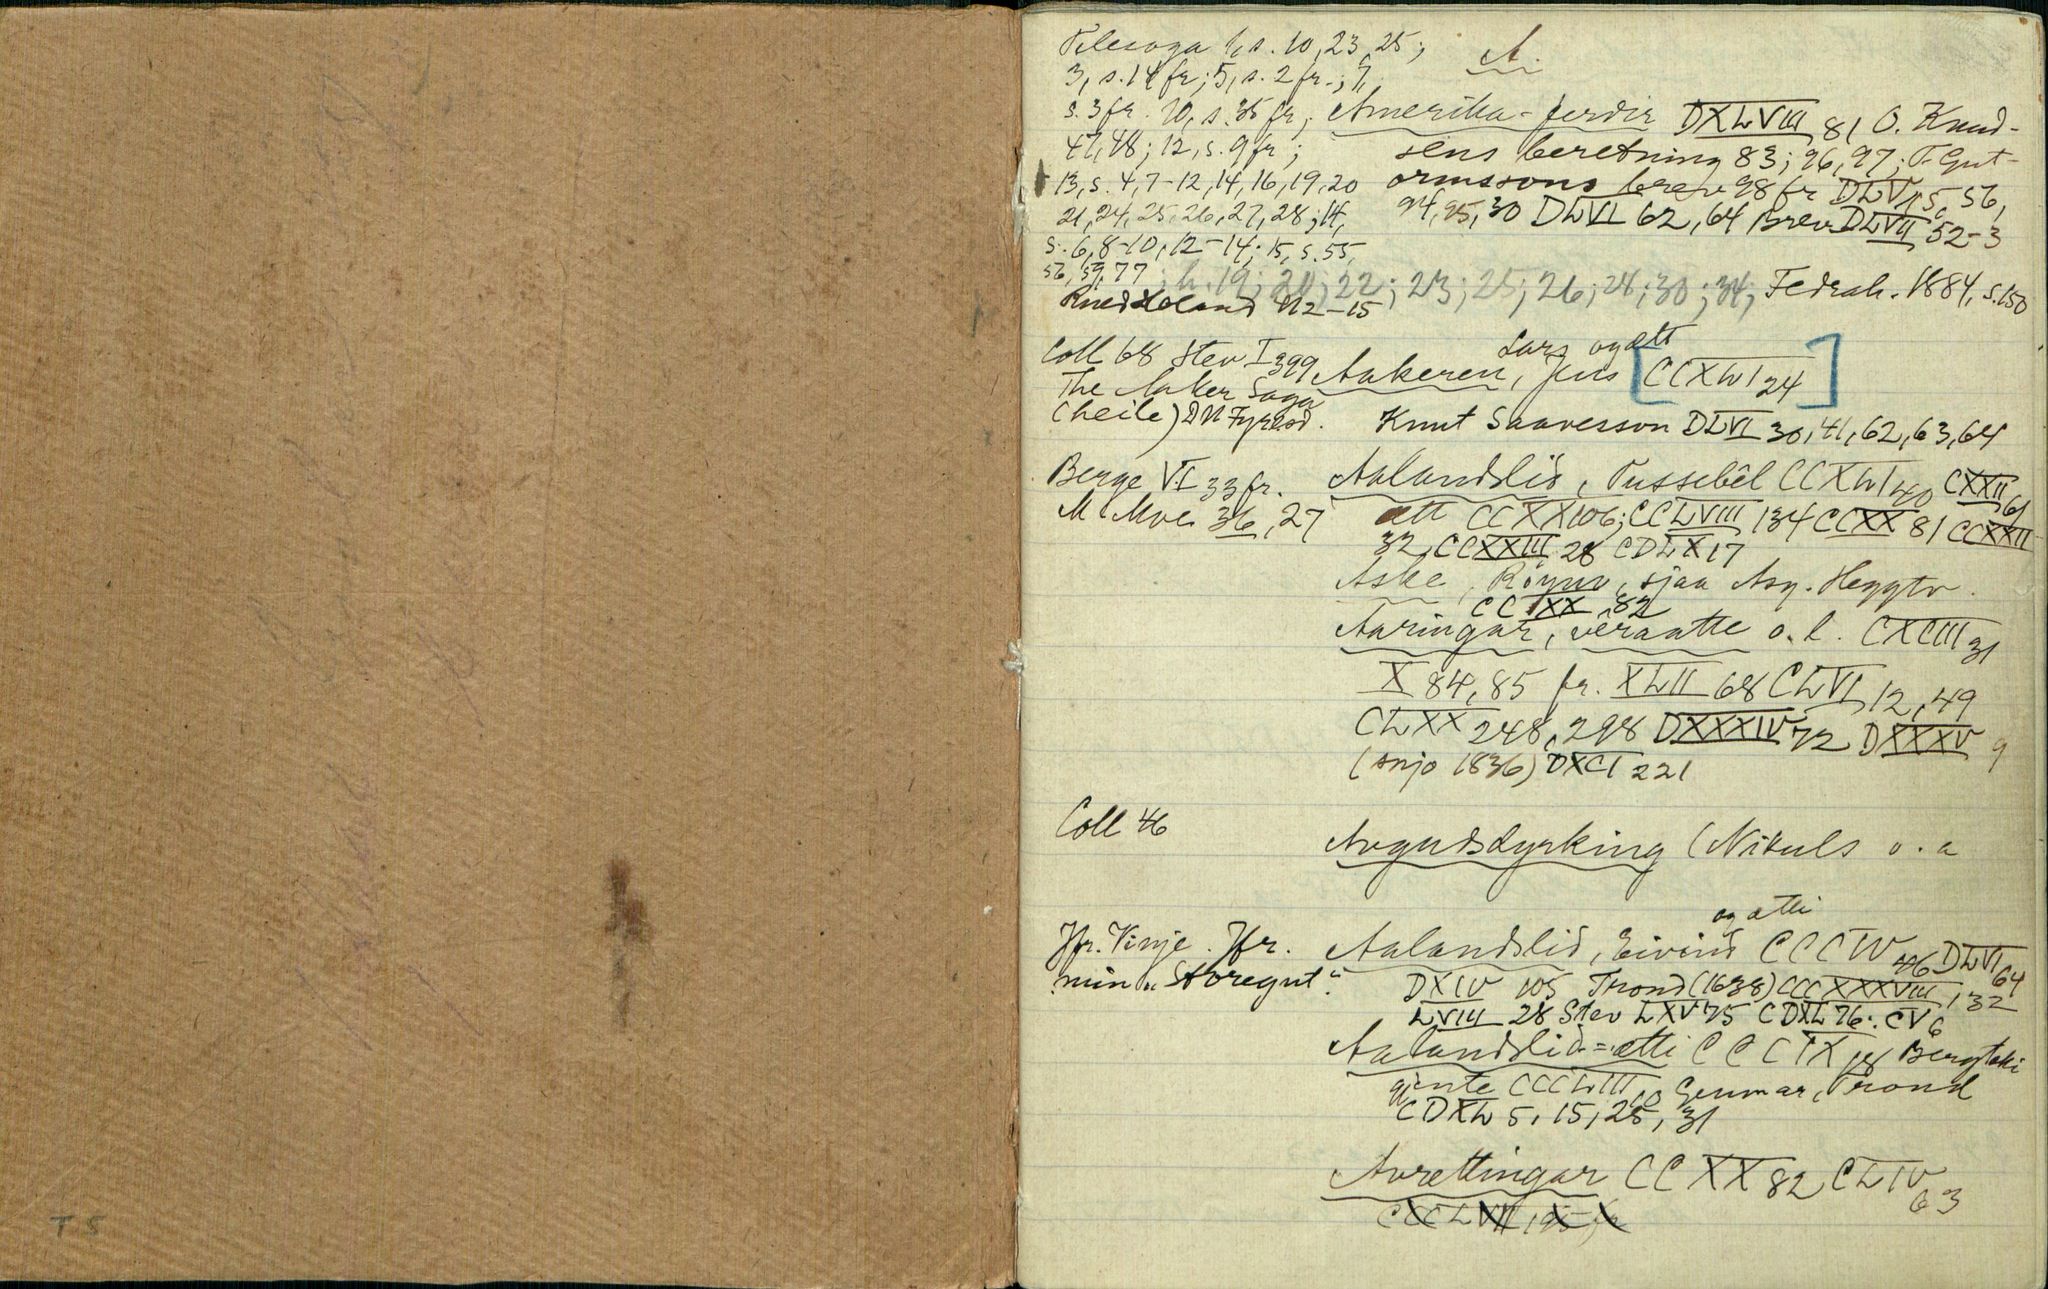 A.
Telesoga 1, s. 10, 23, 25;
3, s. 14 fr; 5, s. 2 fr.; 9,
s. 3 fr. 10, s. 35 fr;
47, 48; 12, s. 9 fr;
13, s. 4, 7-12, 14, 16, 19, 20
21, 24, 25, 26, 27, 28; 14,
s. 6, 8-10, 12-14; 15, s. 55,
56, 59, 77; h. 19; 20; 22; 23; 25; 26; 28; 30; 34; Fedrah. 1884, s. 150
Amerika-ferdir DXLVIII 81 O. Knud-
sens beretning 83; 96, 97; T. Gut-
ormssons brev 98 fr DLV 56,
94, 95, 30 DLVI 62, 64 Brev DLVII 52-3
Coll 68 Stev I 399
The Aaker Saga
(heile) DN Fyresd.
Lars og ætt
Aakeren, Jens [CCXLVI 24]
Knut Saavesson DLVI 30, 41, 62, 63, 64
Berge VI 33 fr.
M Moe 36, 27
Aalandslid, Tussebêl CCXLVI 40 CXXII 61
ætt CCXX 106; CCLVIII 134 CCXX 81 CCXXII
32, CCXXIII 28 CDLX 17
Aske, sjaa Asg. Heggtv.
CCXX 82
Aaringar, veraatte o. l. CXCIII 31
X 84, 85 fr. XLII 68 CLVI 12, 49
CLXX 248, 298 DXXXIV 72 DXXXV 9
(snjo 1836) DXCI 221
Coll 46
Avgudsdyrking (Nikuls o. a
Jfr. Vinje. Jfr.
min "Storegut".
og ætti
Aalandslid, Eivind CCCIV 46 DLVI 64
DXIV 105 Trond (1638) CCCXXXVIII 132
LVIII 28 Stev LXV 75 CDXL 76. CV 6
Aalandslid-ætti CCCIX 18 Bergteki
gjente CCCLIII 10 Gunnar, Trond
CDXL 5, 15, 25, 31
Avrettingar CCXX 82 CLIV 63
T 5